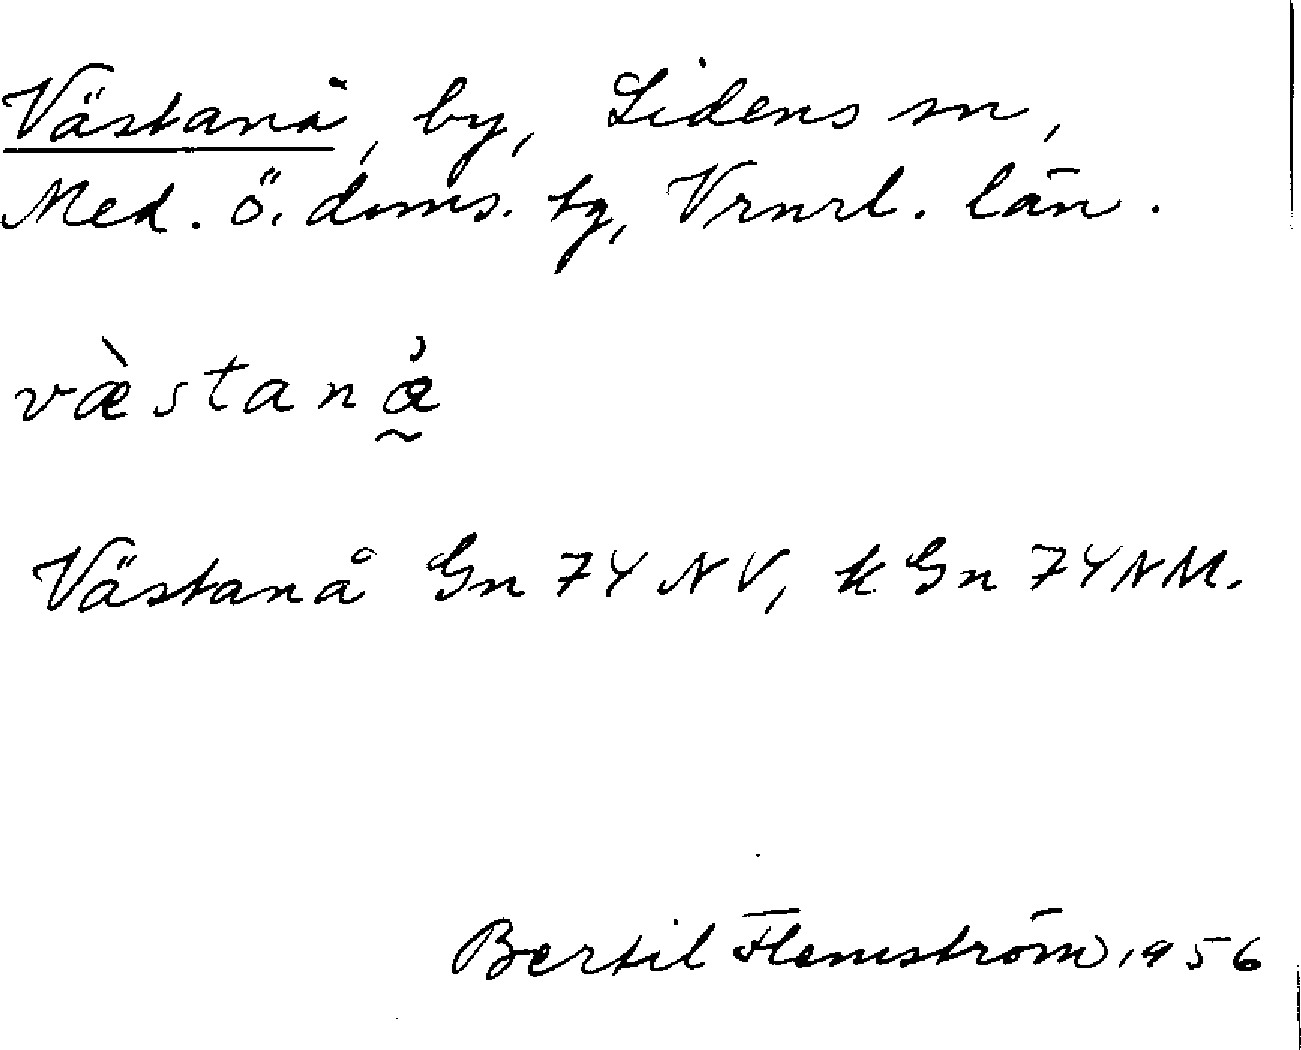 Västanå, by, Lidens sn,
Med. ö. doms. tg, Vrnrl. län.
væ̀stanå̰
Västanå Gn 74 NV, k Gn 74 NM.
Bertil Flemström 1956